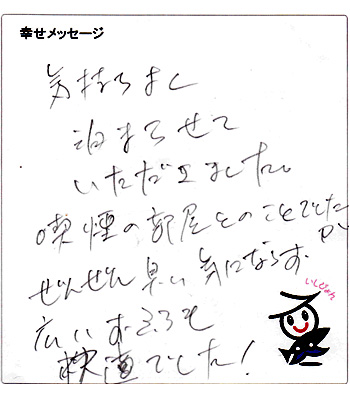 幸せメッセージ
気持ちよく
泊まらせて
いただきました。
喫煙の部屋とのことでしたが
ぜんぜん臭い気にならず
広い
快適でした!